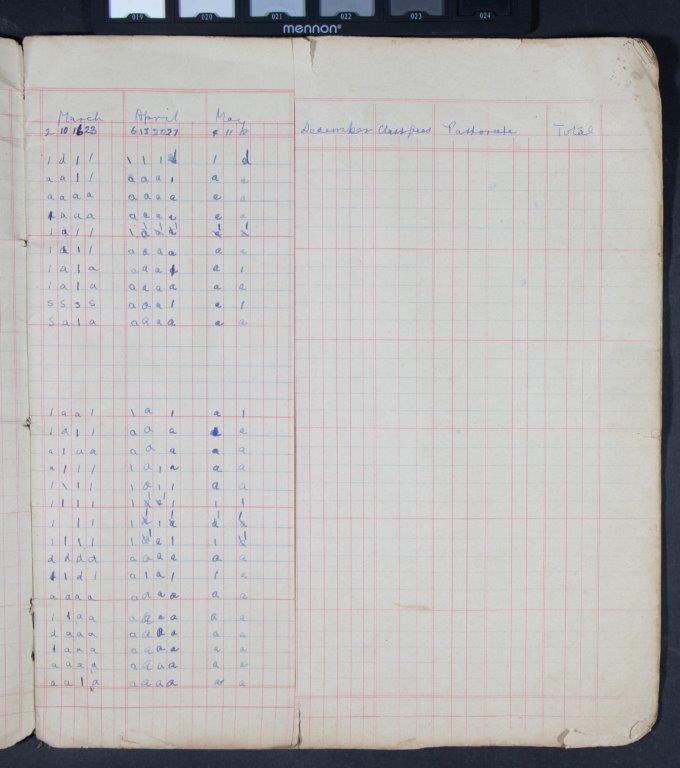 019 020 021 022 023 024
mennon®
March April May
2 10 16 23 6 13 20 27 4 11 18 December Class fees Pastorate Total
1 d 1 1 1 1 1 d 1 d
a a 1 1 a a a 1 a a
a a a a a a a a a a
1 a a a a a a a a a
1 a 1 1
1 a 1 1 a a a a a a
1 a 1 a a a a 1 a 1
1 a 1 a a a a a a a
s s s s a a a 1 a 1
s a 1 a a a a a a a
1 a a 1 1 a 1 a 1
1 d 1 1 a a a a
a 1 a a a a a a a
a 1 1 1 1 a 1 a a a
1 1 1 1 1 a 1 1 a a
1 1 1 1 1 1 1 1
1 1 1
1 1 1 1
d d d d a a a a a a
1 1 d 1 a 1 a 1 1 a
a a a a a a a a a a
1 1 a a a a a a a a
d a a a a a a a a a
1 a a a a a a a a a
a a a a a a a a a a
a a 1 a a a a a a a